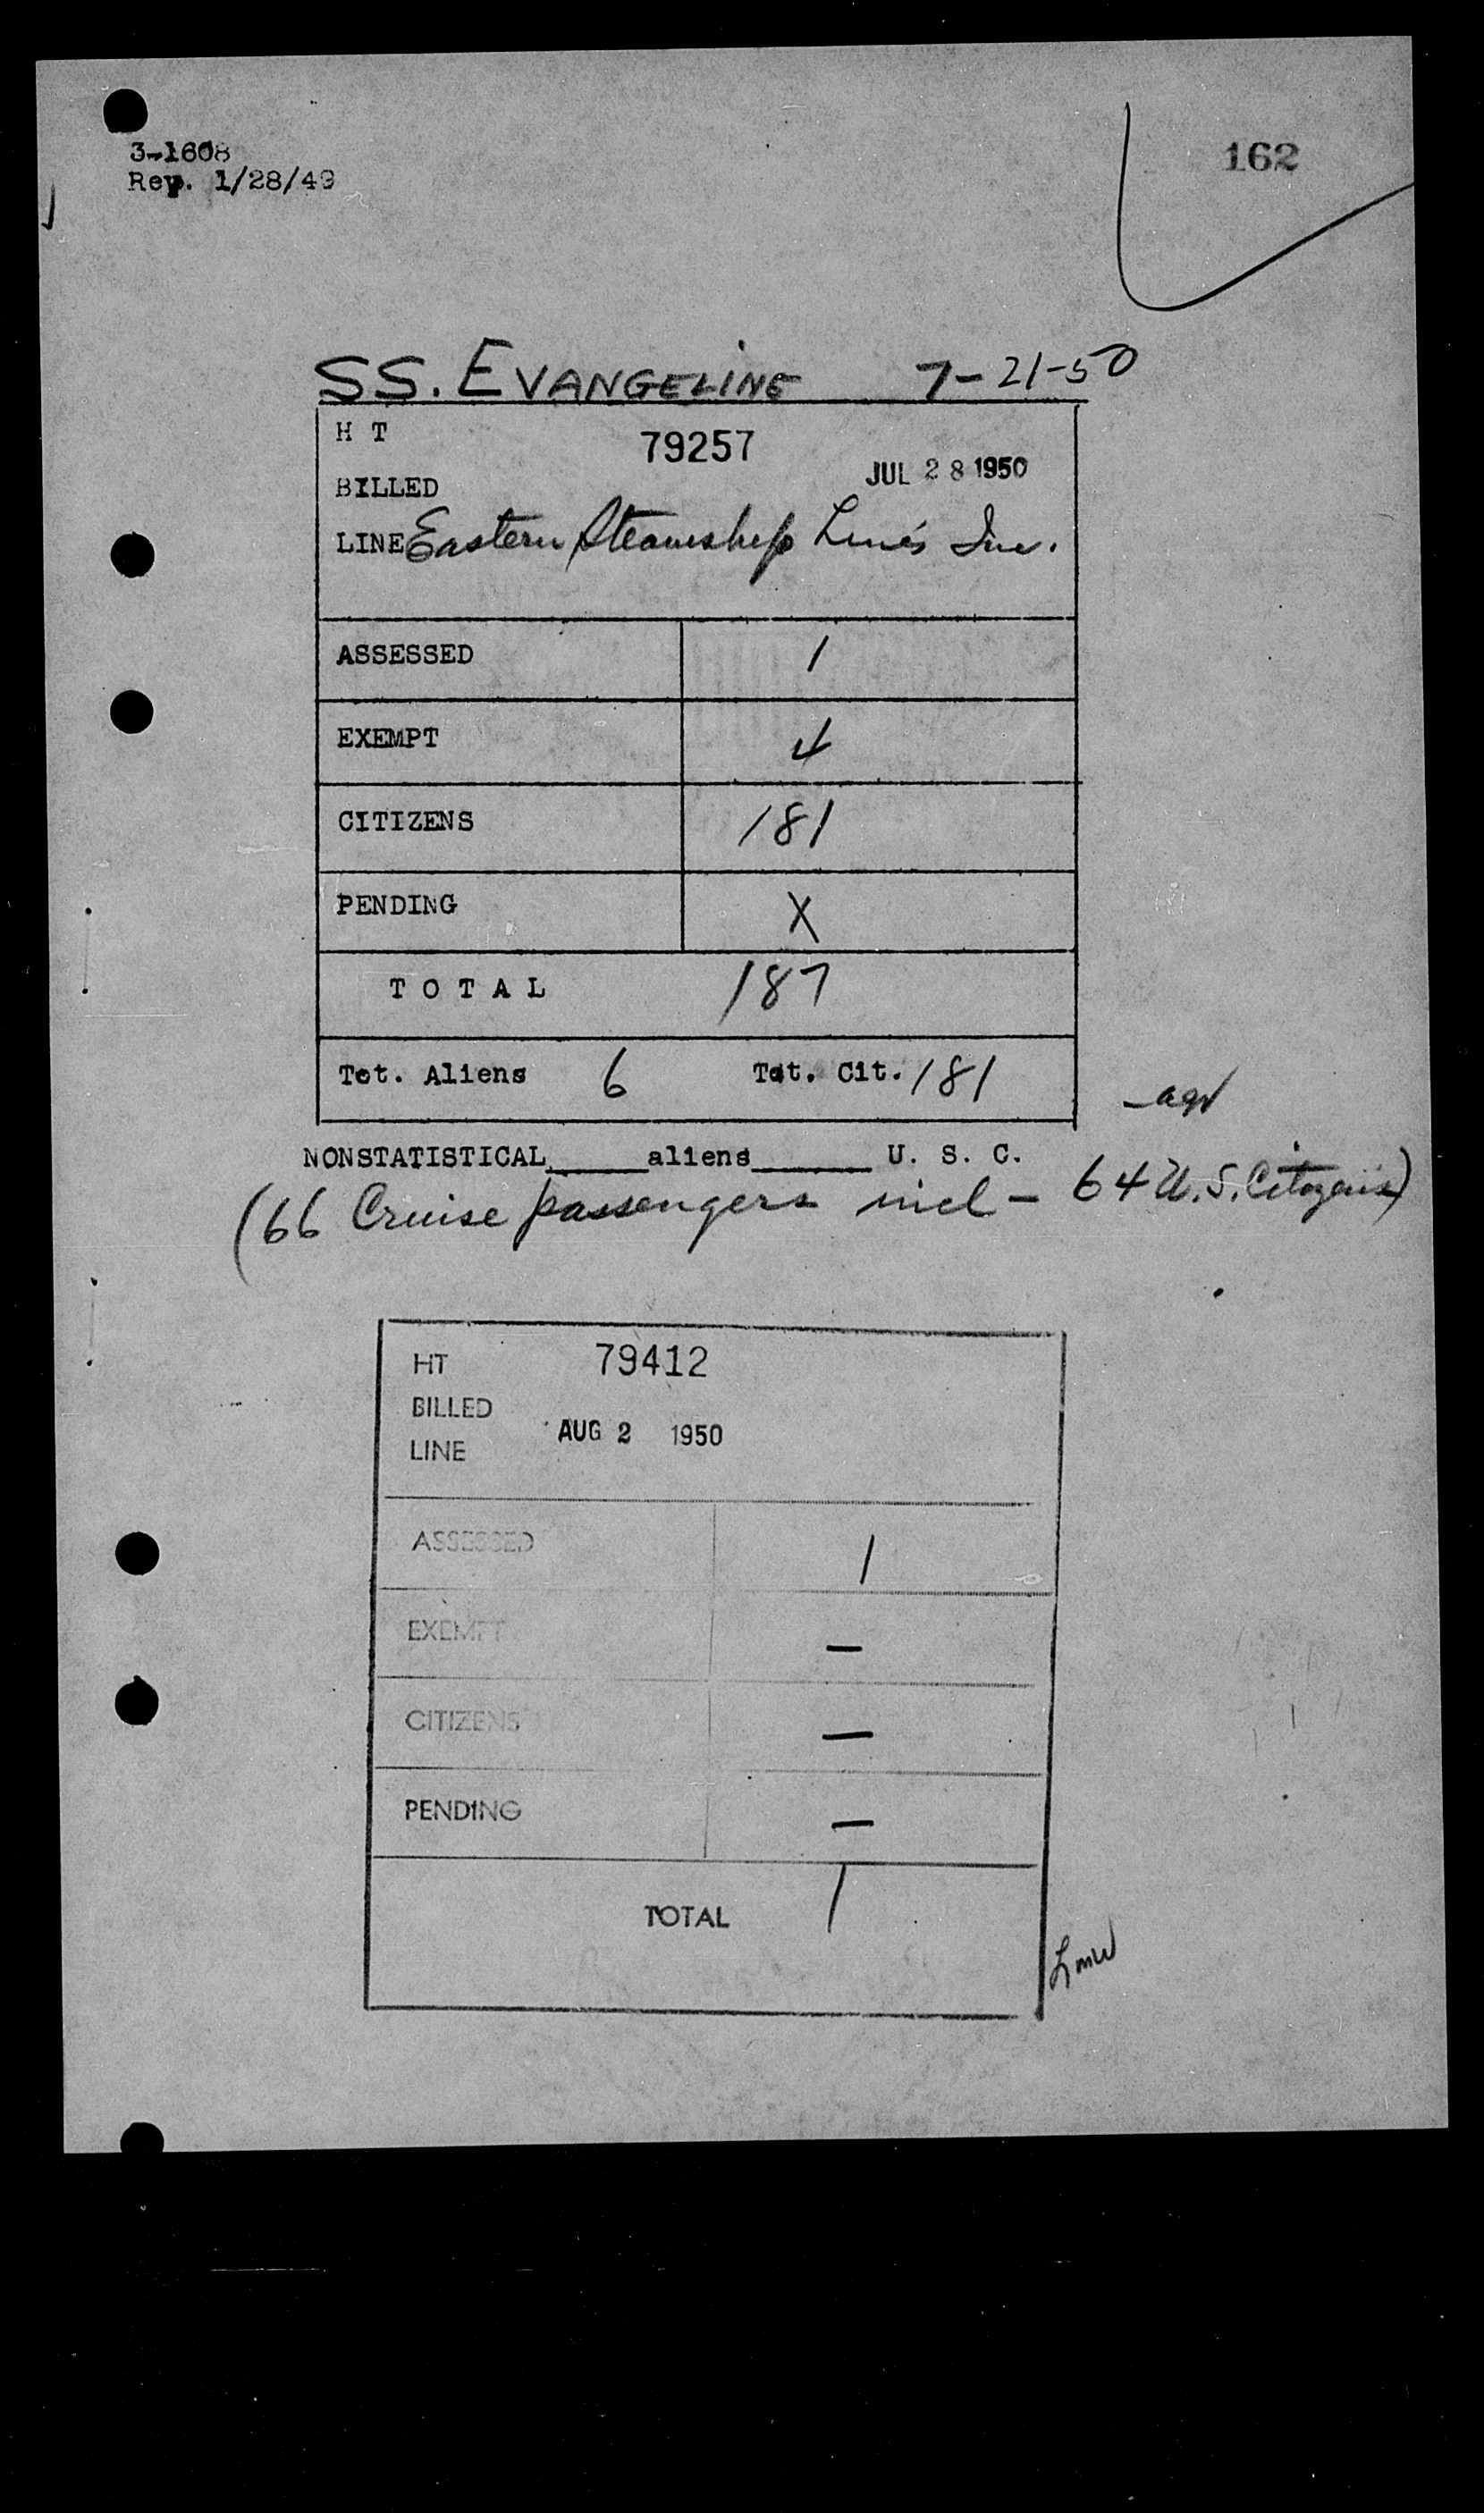 3-1608
Rev. 1/28/49
162
SS. EVANGELINE 7-21-50
H T 79257
BILLED JUL 28 1950
LINE Eastern Steamship Lines Inc.
ASSESSED 1
EXEMPT 4
CITIZENS 181
PENDING X
TOTAL 187
Tot. Aliens 6 Tot. Cit. 181
NONSTATISTICAL ______ aliens ______ U. S. C.
(66 Cruise passengers incl - 64 U.S. Citizens)
HT 79412
BILLED AUG 2 1950
LINE
ASSESSED 1
EXEMPT —
CITIZENS —
PENDING —
TOTAL 1
Lmw